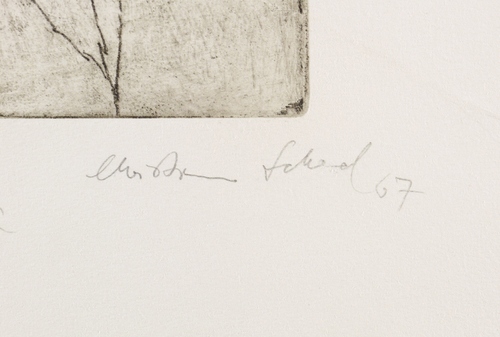 Christian Schad 67